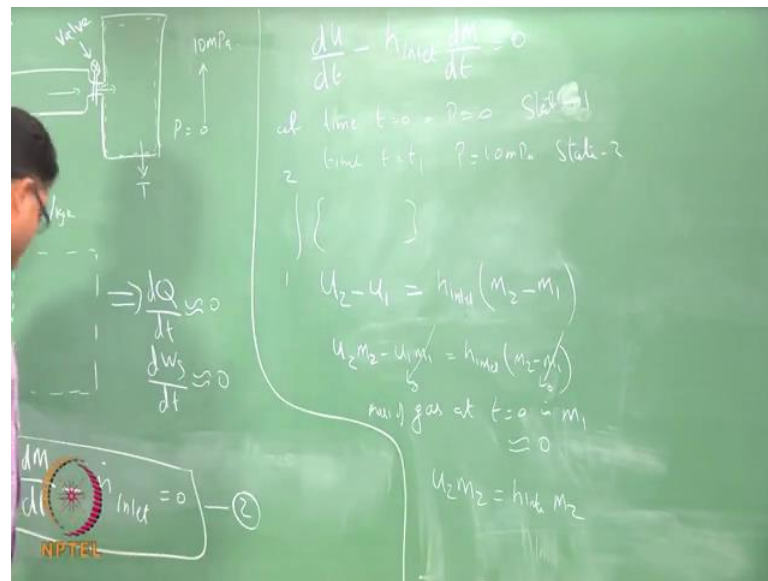 Valve
10mPa
P = 0
T
⇒ dQ/dt ≈ 0
dWs/dt ≈ 0
dM/dt ṁ inlet = 0 — ②
NPTEL
dU/dt - h inlet dM/dt = 0
at time t=0 - P=0 State-1
time t=t₁ P=10mPa State-2
2
∫ { }
1
U₂ - U₁ = h inlet (M₂ - M₁)
U₂M₂ - U₁M₁ = h inlet (M₂ - M₁)
0 0
mass of gas at t=0 is M₁
≈ 0
U₂M₂ = h inlet M₂